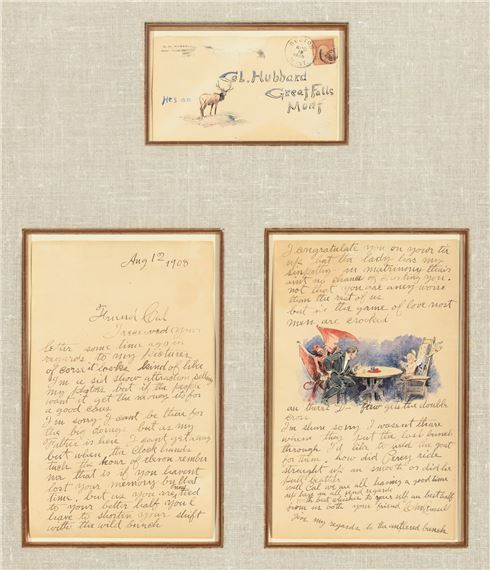 Hes an
Cal. Hubbard
Great Falls
Mont
Aug 12 1908
Friend Cal
I received your
letter some time ago in
regards to my pictures
of corse it looks kind of like
I'm a sid show attraction selling
my photos but if the people
want it get the money its for
a good caus
I'm sorry I cant be there for
the big doings but as my
Father is here I cant get away
but when the clock hands
tuch the hour of eleven remember
me that is if you havent
lost your memory by that
time, but as you are, tied
to your better half you'l
have to shorten your drift
with the wild bunch
I congratulate you on your tie
up but the lady has my
simpathy in matrimony thairs
ant no chanc of dusting you.
not that you are aney worse
than the rest of us
but in the game of love most
men are crooked
an burs D— few gits the double
cross
I'm shure sorry I wasent thare
when they put the last bunch
through I'd like to held the goat
for them, how did Percy ride
straight up an smooth or did he
pull leather
will Cal we are all having a good time
up here an all send regards
with best wishes to your self an best half
from us both your friend
Give my regards to the antlered bunch